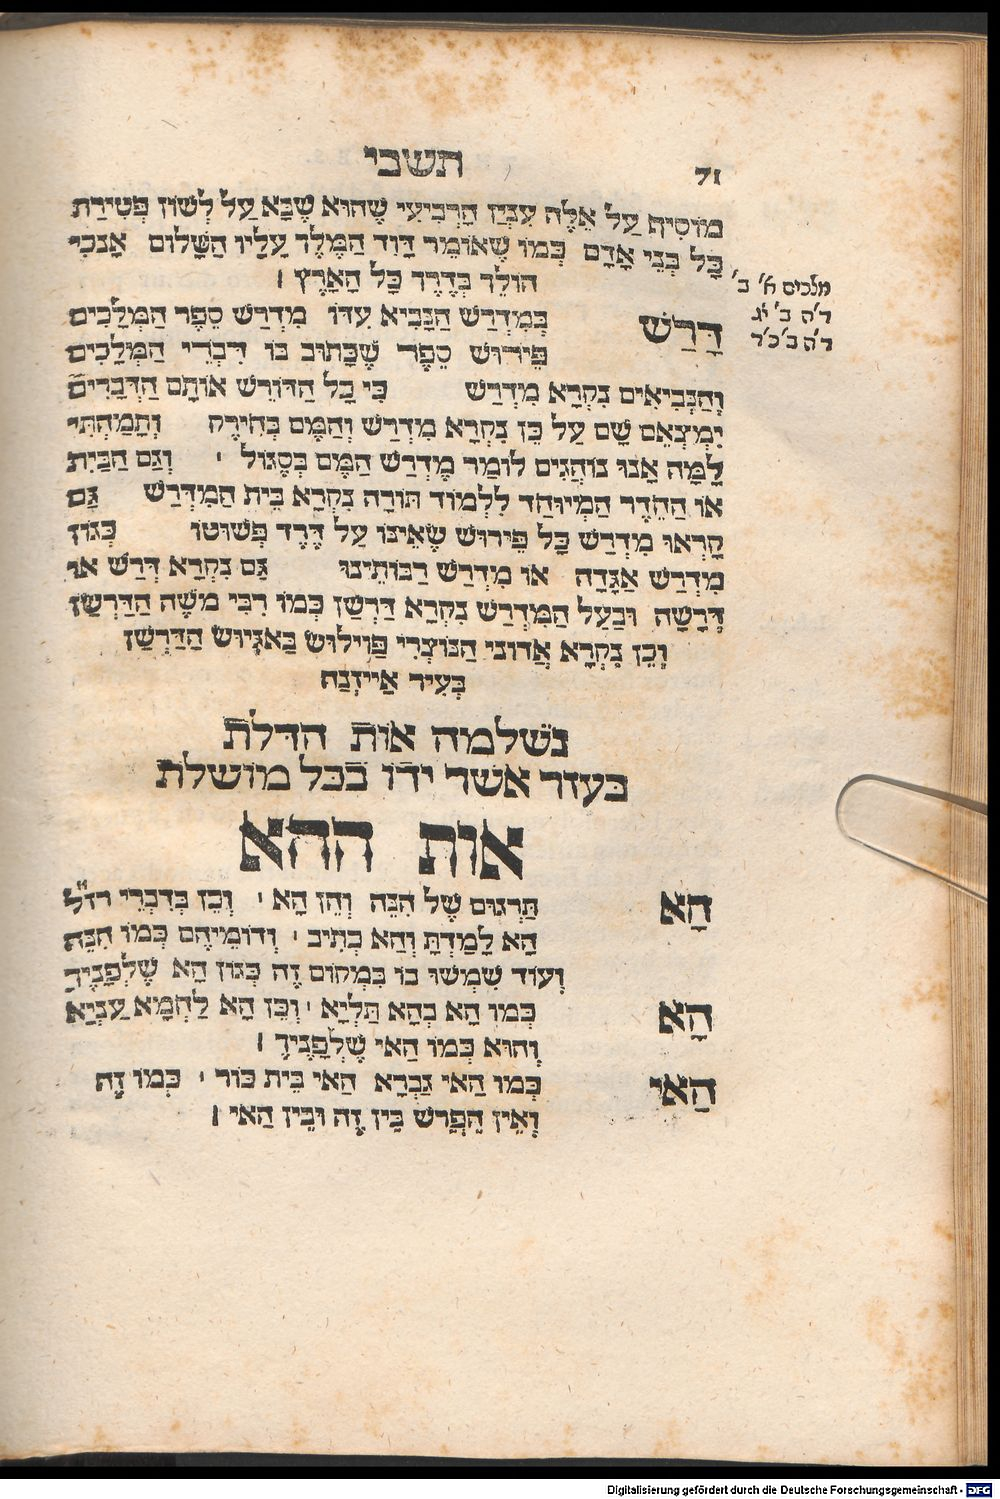 תשבי
71
מוֹסִיף עַל אֵלֶּה עִנְיָן הָרְבִיעִי שֶׁהוּא שֶׁבָּא עַל לְשׁוֹן פְּטִירַת
כָּל בְּנֵי אָדָם כְּמוֹ שֶׁאוֹמֵר דָּוִד הַמֶּלֶךְ עָלָיו הַשָּׁלוֹם אָנֹכִי
הוֹלֵךְ בְּדֶרֶךְ כָּל הָאָרֶץ ׀
מלכים א' ב'
ד'ה ב' יג
ד'ה ב' כ'ד
דָּרַשׁ בְּמִדְרַשׁ הַנָּבִיא עִדּוֹ מִדְרַשׁ סֵפֶר הַמְּלָכִים
פֵּירוּשׁ סֵפֶר שֶׁכָּתוּב בּוֹ דִּבְרֵי הַמְּלָכִים
וְהַנְּבִיאִים נִקְרָא מִדְרַשׁ כִּי כָל הַדּוֹרֵשׁ אוֹתָם הַדְּבָרִים
יִמְצָאֵם שָׁם עַל כֵּן נִקְרָא מִדְרַשׁ וְהַמֶּם בְּחִירֶק וְתָמַהְתִּי
לָמָּה אָנוּ נוֹהֲגִים לוֹמַר מֶדְרַשׁ הַמֶּם בְּסֶגוֹל ' וְגַם הַבַּיִת
אוֹ הַחֶדֶר הַמְיוּחַד לִלְמוֹד תּוֹרָה נִקְרָא בֵּית הַמִּדְרַשׁ גַּם
קָרְאוּ מִדְרַשׁ כָּל פֵּירוּשׁ שֶׁאֵינוֹ עַל דֶּרֶךְ פְּשׁוּטוֹ כְּגוֹן
מִדְרַשׁ אַגָּדָה אוֹ מִדְרַשׁ רַבּוֹתֵינוּ גַּם נִקְרָא דְּרַשׁ אוֹ
דְּרָשָׁה וּבַעַל הַמִּדְרַשׁ נִקְרָא דַּרְשָׁן כְּמוֹ רִבִּי מֹשֶׁה הַדַּרְשָׁן
וְכֵן נִקְרָא אֲדוֹנִי הַנּוֹצְרִי פַּוִילוּשׂ בַּאגִיוּשׂ הַדַּרְשָׁן
בְּעִיר אַייזְנַה
נשלמה אות הדלת
בעזר אשר ידו בכל מושלת
אות ההא
הָא תַּרְגּוּם שֶׁל הִנֵּה וְהֵן הָא ' וְכֵן בְּדִבְרֵי רז"ל
הָא לָמַדְתָּ וְהָא כְתִיב ' וְדוֹמֵיהֶם כְּמוֹ הִנֵּה
וְעוֹד שִׁמְּשׁוּ בוֹ בִּמְקוֹם זֶה כְּגוֹן הָא שֶׁלְּפָנֶיךָ
הָא כְּמוֹ הָא בְהָא תַּלְיָא ' וְכֵן הָא לַחְמָא עַנְיָא
וְהוּא כְּמוֹ הַאי שֶׁלְּפָנֶיךָ ׀
הַאי כְּמוֹ הַאי גַּבְרָא הַאי בֵּית כּוֹר ' כְּמוֹ זֶה
וְאֵין הֶפְרֵשׁ בֵּין זֶה וּבֵין הַאי ׀
Digitalisierung gefördert durch die Deutsche Forschungsgemeinschaft - DFG